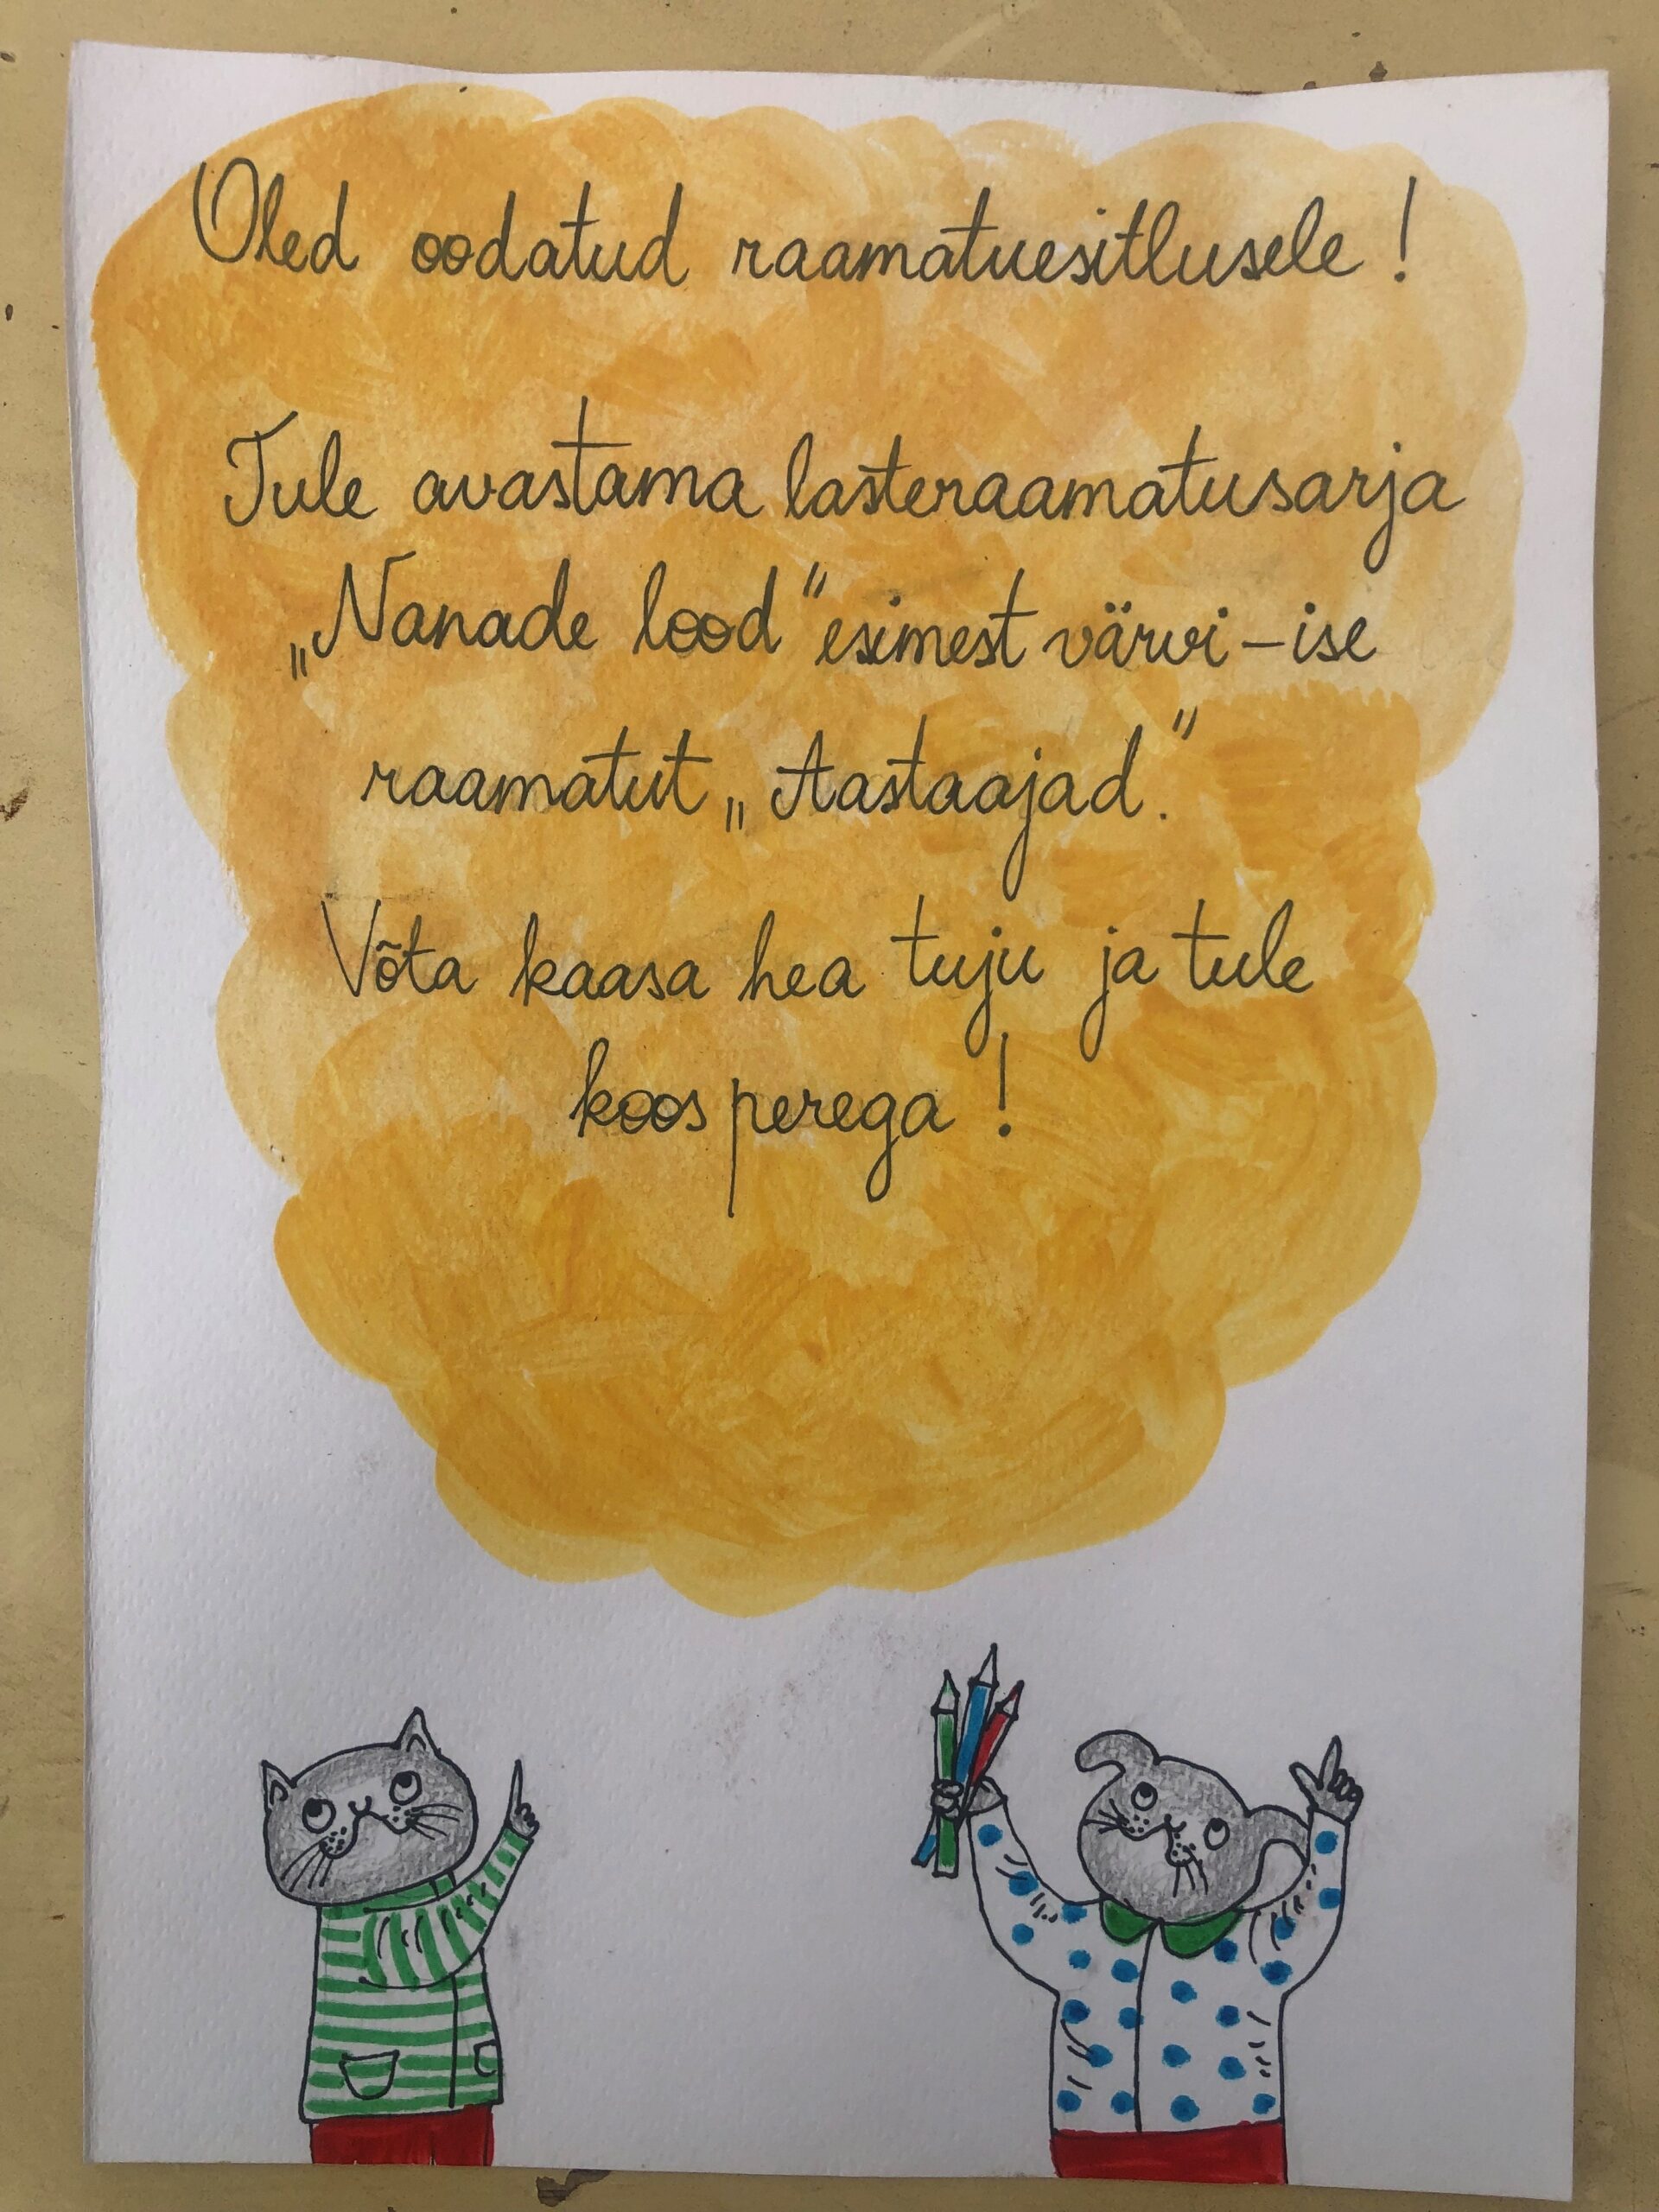 Oled oodatud raamatuesitlusele!
Tule avastama lasteraamatusarja
„Nanade lood" esimest värvi-ise
raamatut „Aastaajad."
Võta kaasa hea tuju ja tule
koos perega!